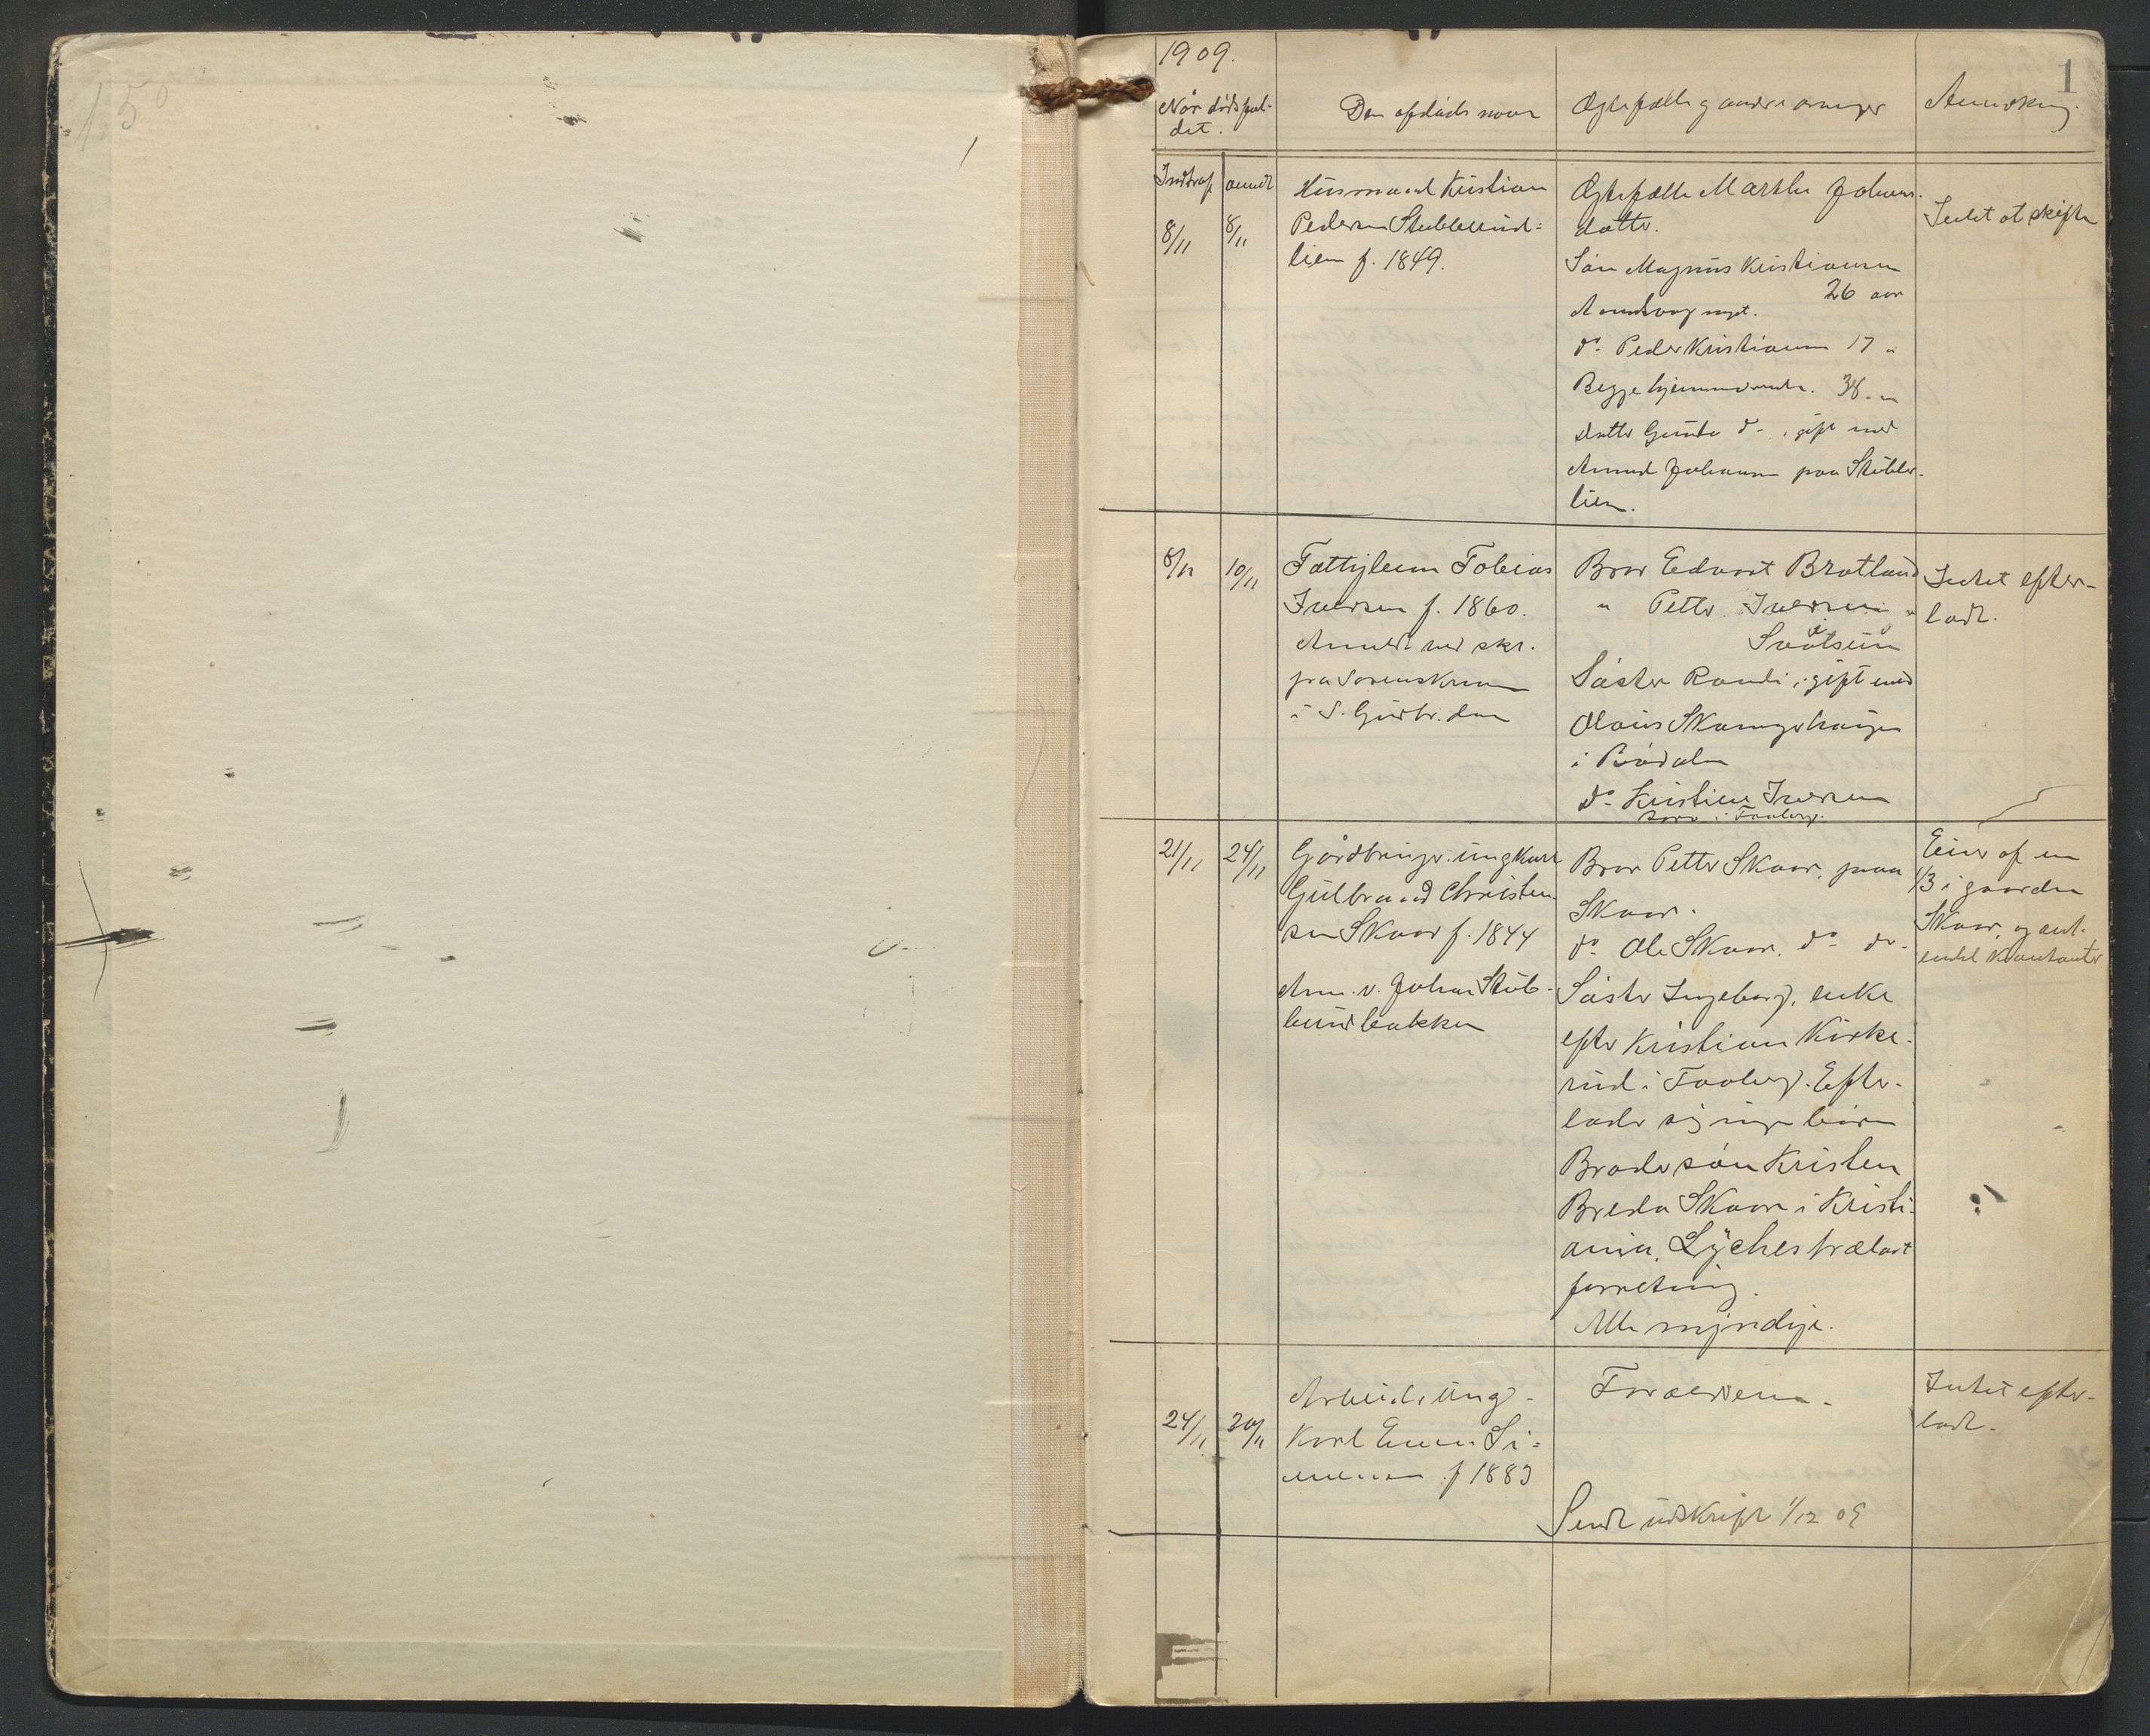 150
1
1909.
Når dödsfal-
det.
Den afdöde navn
Ægtefælle og andre arvinger
Anmerkning.
Indtraf
anmeldt
8/11
8/11
Husmand Kristian
Pedersen Stubberud-
lien f. 1849.
Ægtefælle Marthe Johans-
datter.
Sön Magnus Kristiansen
26 aar
d- Peder Kristiansen 17 "
Begge hjemmeværende. 38 - "
datter d- , gift med
Amund Johansen paa Stubber-
lien.
Intet at skifte
8/11
10/11
Fattiglem Tobias
Iversen f. 1860.
Anmeldt ved skr.
fra Sorenskriveren
i S. Gudbr. dalen
Bror Edvart Brotlund
" Petter Iversen "
Söster Randi, gift med
Olaus
i
d- Kristine Iversen
i Faaberg.
Intet efter-
ladt.
21/11
24/11
Gårdbruger. ungkarl
Gulbrand Christen-
sen Skaar f. 1844
Anm. v. Johan Stub-
berudbakken
Bror Petter Skaar, paa
Skaar.
d- Ole Skaar. d- d-
Söster Ingeborg, enke
efter Kristian Kirke-
rud i Faaberg. Efter-
lader sig ingen börn
Brodersön Kristen
Breda Skaar i Kristi-
ania. Lyches trælast
forretning.
Alle myndige.
Eier af en
1/3 i gaarden
Skaar, og ant.
endel kontanter
24/11
30/11
Arbeider ung-
karl Si-
mensen f 1883
Forældrene.
Sendt udskrift 1/12 09
Intet efter-
ladt.